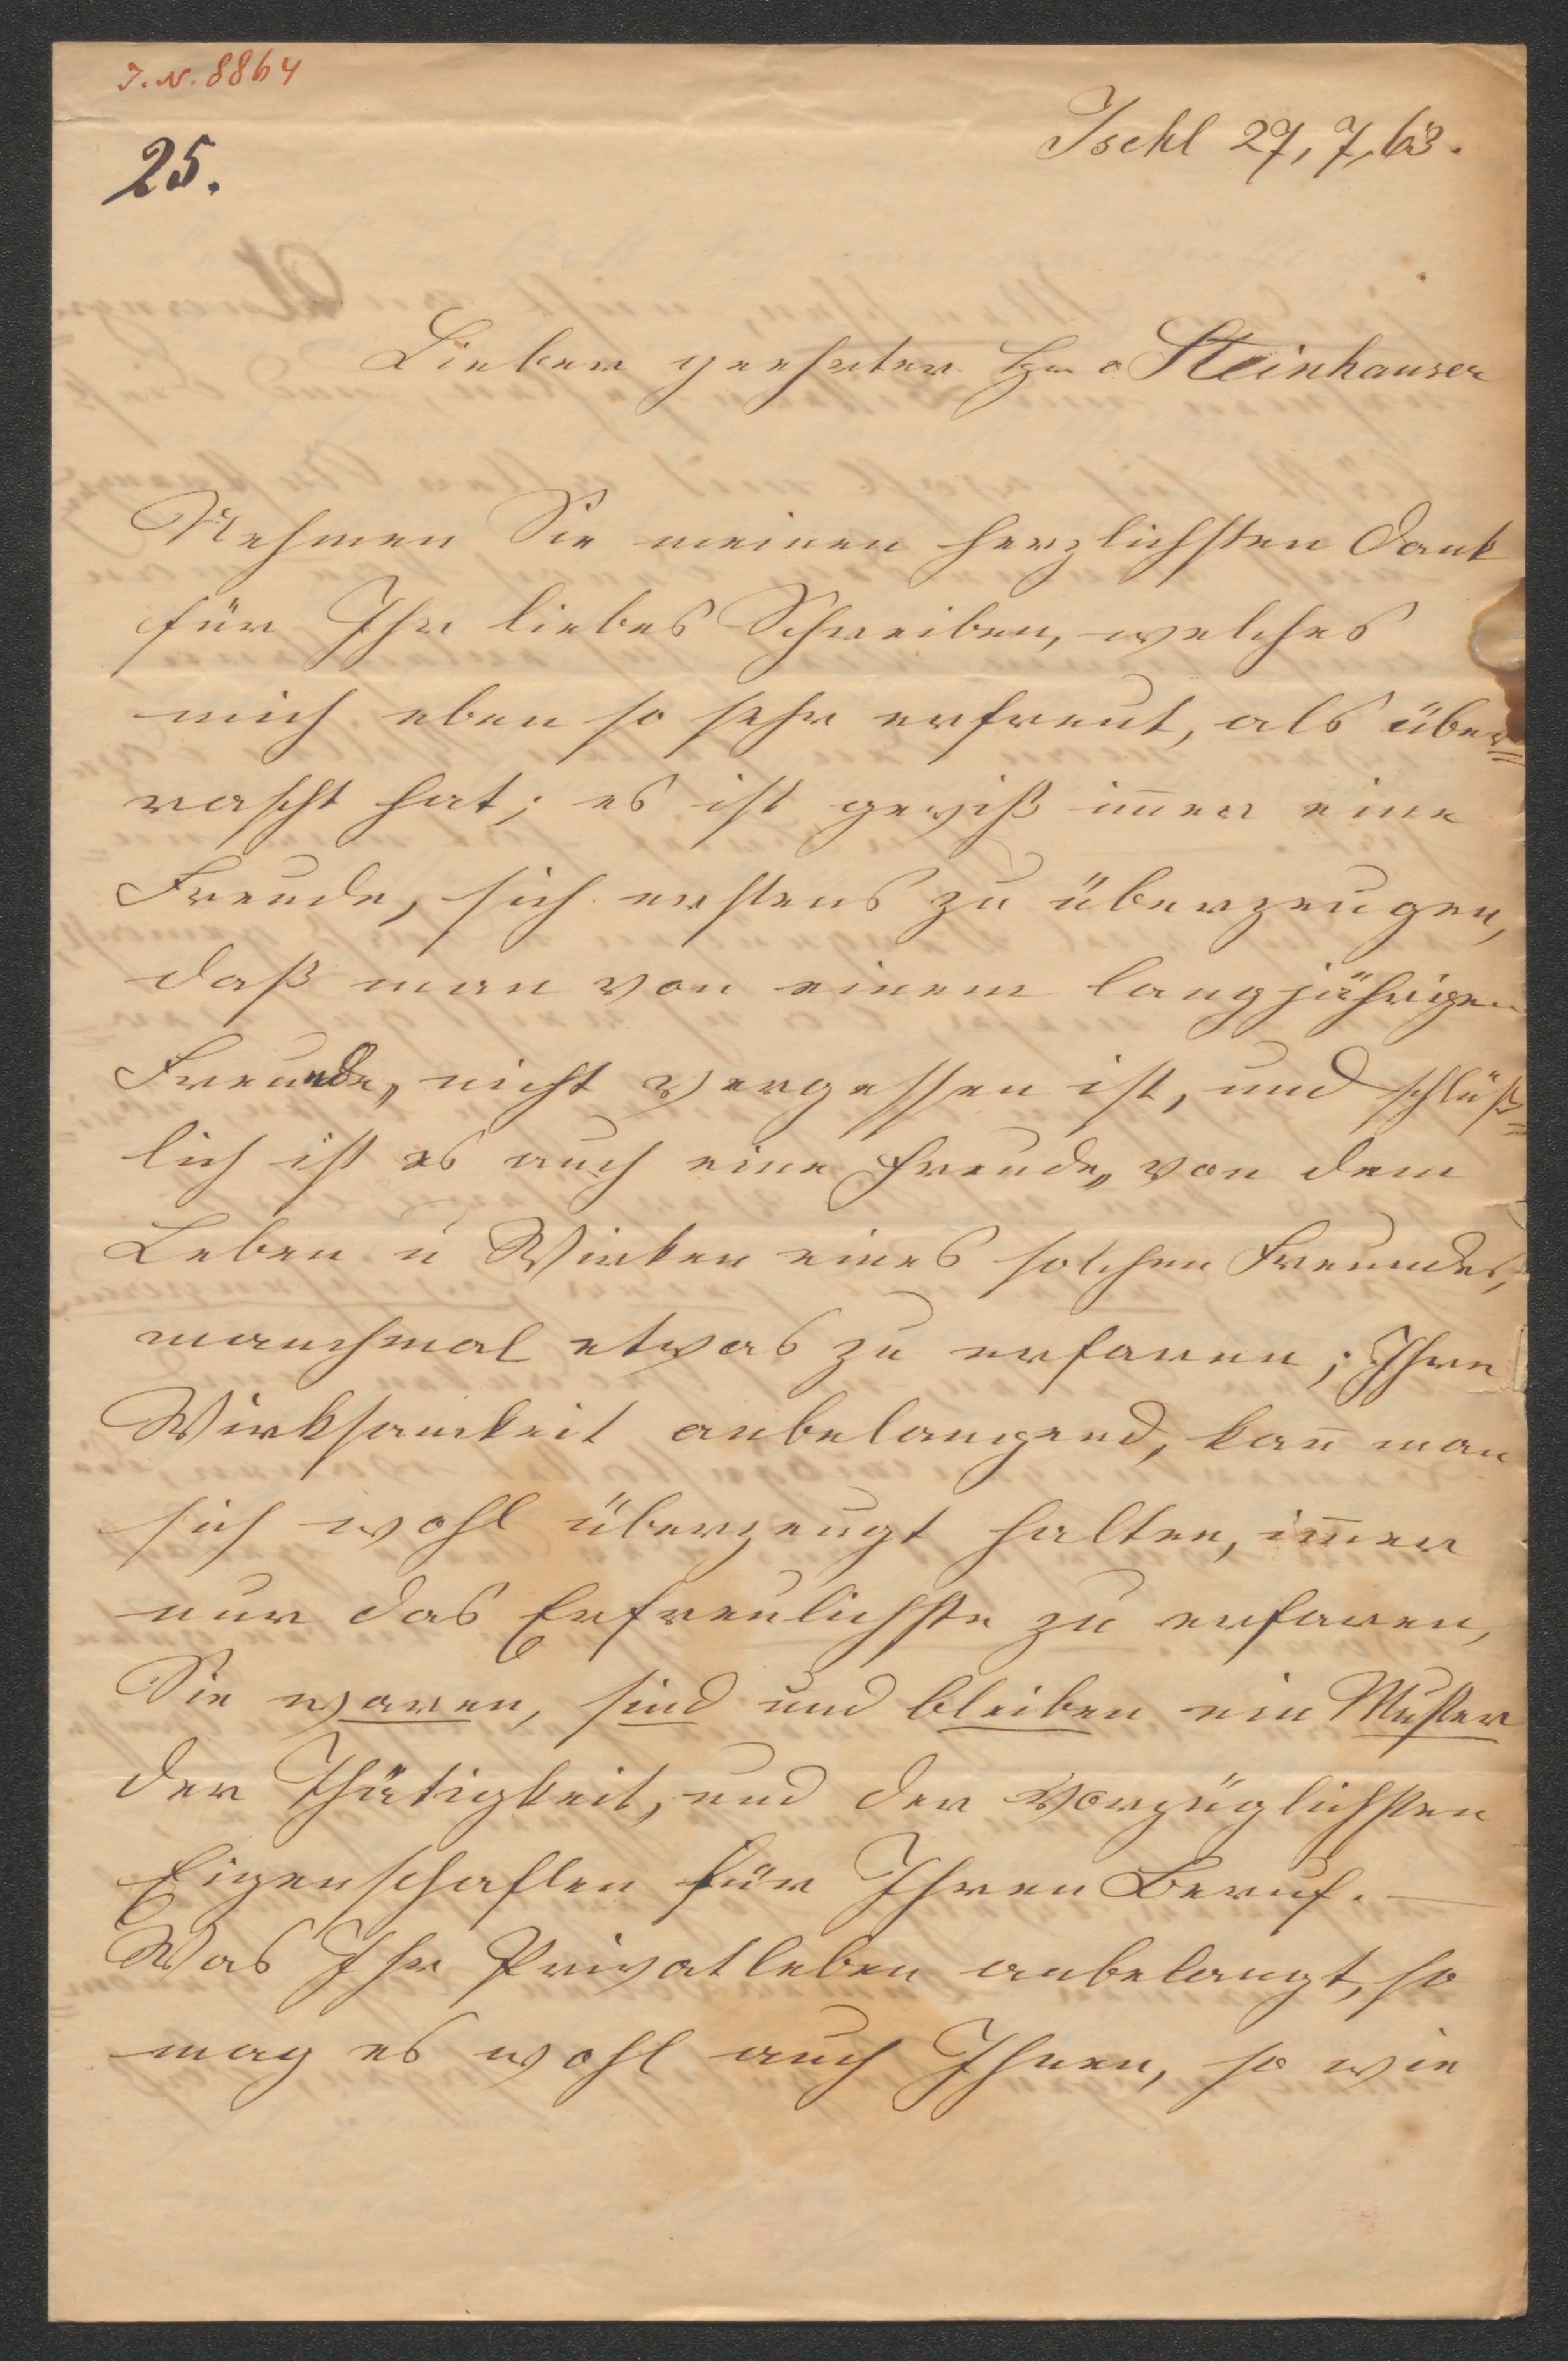 J. N. 8864
25.
Ischl 27, 7, 63.
Lieber geehrter Hr v Steinhauser
Nehmen Sie meinen herzlichsten Dank
für Ihr liebes Schreiben, welches
mich eben so sehr erfreut, als über=
rascht hat; es ist gewiß im̄er eine
Freude, sich erstens zu überzeugen,
daß man von einem langjährigen
Freunde, nicht vergessen ist, und schlüß=
lich ist es auch eine Freude, von dem
Leben u Wirken eines solchen Freundes,
manchmal etwas zu erfaren; Ihre
Wirksamkeit anbelangend, kan̄ man
sich wohl überzeugt halten, im̄er
nur das Erfreulichste zu erfaren,
Sie waren, sind und bleiben ein Muster
der Thätigkeit, und der vorzüglichsten
Eigenschaften für Ihren Beruf. —
Was Ihr Privatleben anbelangt, so
mag es wohl auch Ihnen, so wie